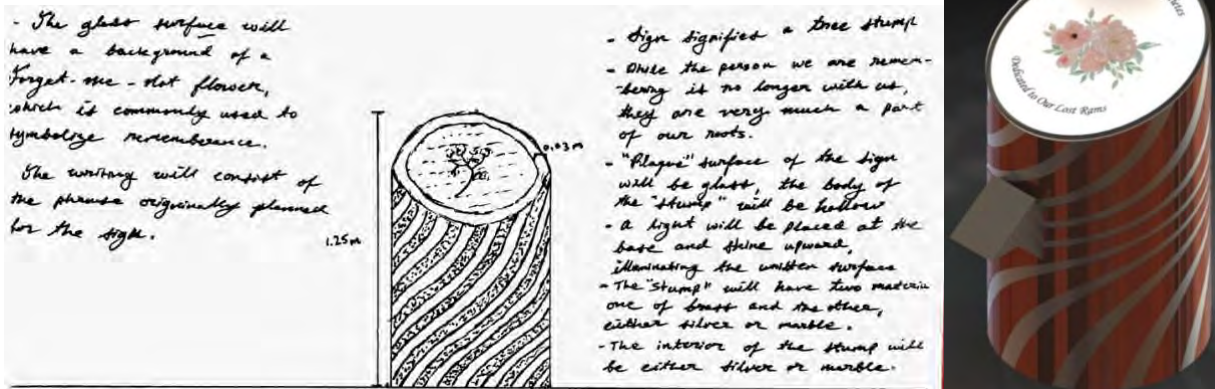 - The glass surface will
have a background of a
Forget-me-not flower,
which is commonly used to
symbolize rememberance.
The writing will consist of
the phrase originally planned
for the sign.
1.25m
0.03m
- Sign signifies a tree stump
- While the person we are remem-
bering is no longer with us,
they are very much a part
of our roots.
- "Plaque" surface of the sign
will be glass, the body of
the "stump" will be hollow
- A light will be placed at the
base and shine upward,
illuminating the written surface
- The "stump" will have two materia
one of brass and the other,
either silver or marble.
- The interior of the stump will
be either silver or marble.
Dedicated to Our Lost Rams